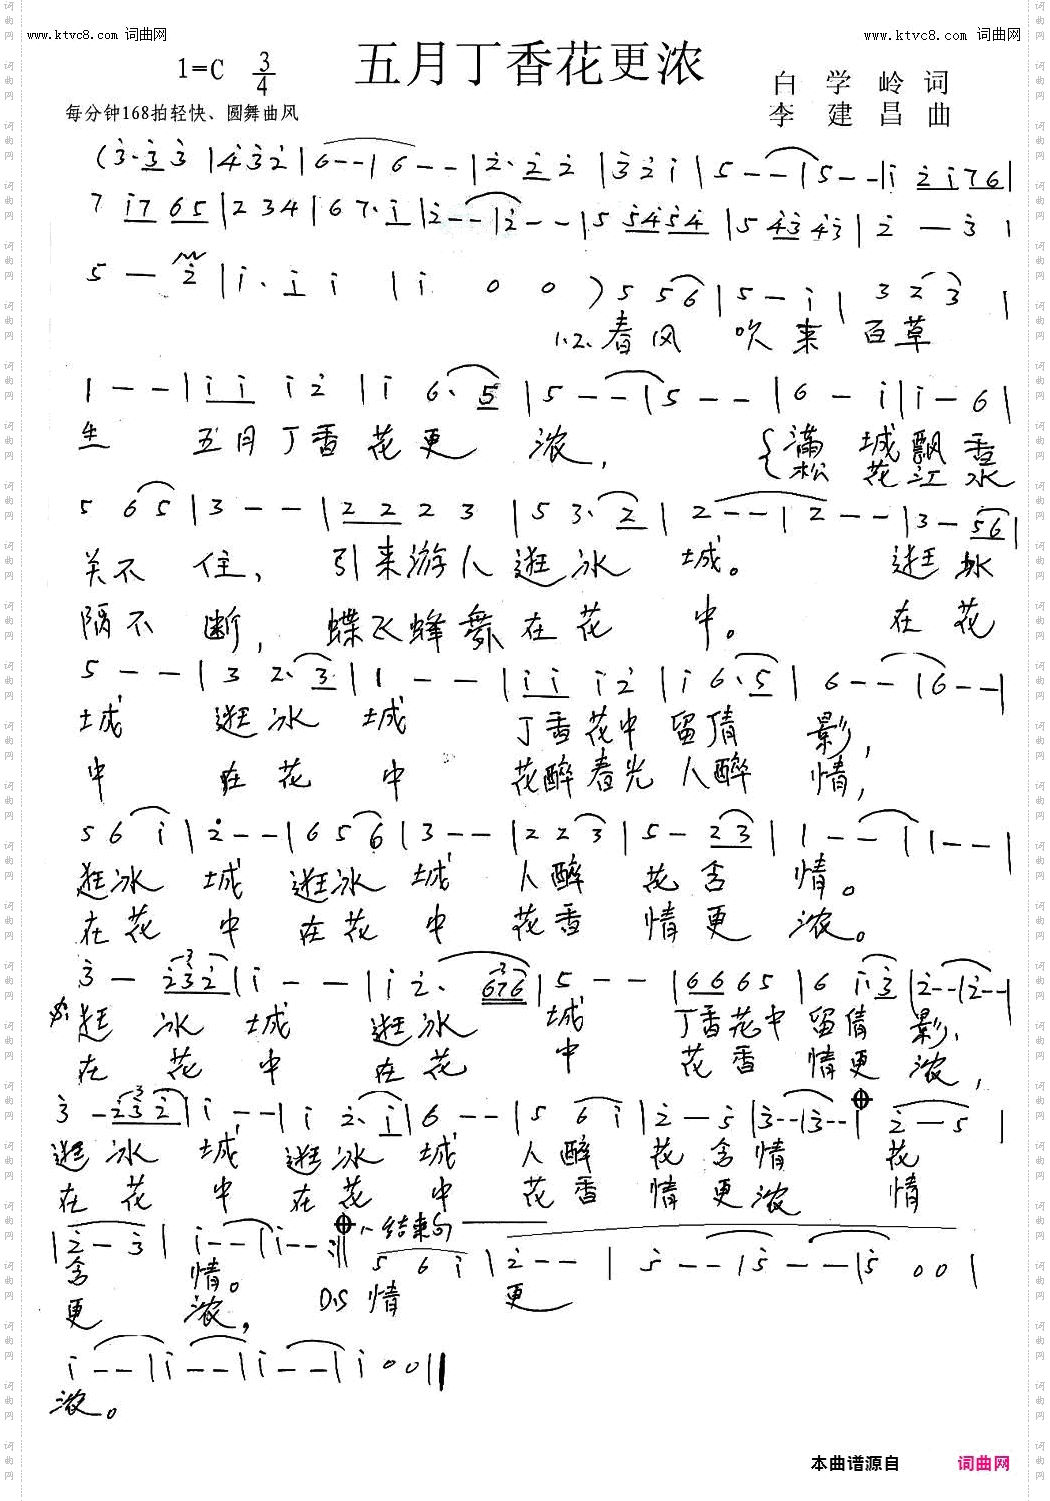 www.ktvc8.com 词曲网 www.ktvc8.com 词曲网
五月丁香花更浓
1=C 3/4
白 学 岭 词
每分钟168拍轻快、圆舞曲风
李 建 昌 曲
(3·3 3 |4 3 2 |6--|6--|2·2 2 |3 2 i |5--|5--|i 2i76|
7 i7 65|2 3 4|6 7·i|2--|2--|5 5454|5 43 43|2 — 3 |
5 — 2 |i·i i |i 0 0 ) 5 56|5-i| 3 2 3 |
1.2.春风 吹来 百草
1--|i i i 2|i 6·5|5--|5--|6-i|i-6|
生 五月丁香花更 浓, {满 城飘香
松 花江水
5 65|3--|2 2 2 3|5 3·2|2--|2--|3-56|
关不 住, 引来游人逛冰 城。 逛冰
隔不 断, 蝶飞蜂舞在花 中。 在花
5--|3 2·3|1--|i i i 2|i 6·5|6--|6--|
城 逛冰 城 丁香花中留倩 影,
中 在花 中 花醉春光人醉 情,
5 6 i|2--|6 5 6|3--|2 2 3|5-23|1--|1--|
逛冰 城 逛冰 城 人醉 花含 情。
在花 中 在花 中 花香 情更 浓。
3-232|i--|i 2·676|5--|6 6 6 5|6 i·3|2--|2--|
逛 冰 城 逛冰 城 丁香花中 留倩 影,
在 花 中 在花 中 花香 情更 浓,
3-232|i--|i 2·i|6--|5 6 i|2-5|3--|3--|2-5|
逛 冰 城 逛冰 城 人醉 花 含情 花
在 花 中 在花 中 花香 情更浓 情
|2-3|i--|i--:‖ 结束句
5 6 i|2--|5--|5--|5 0 0|
含 情。
更 浓, D.S 情 更
i--|i--|i--|i 0 0‖
浓。
本曲谱源自 词曲网